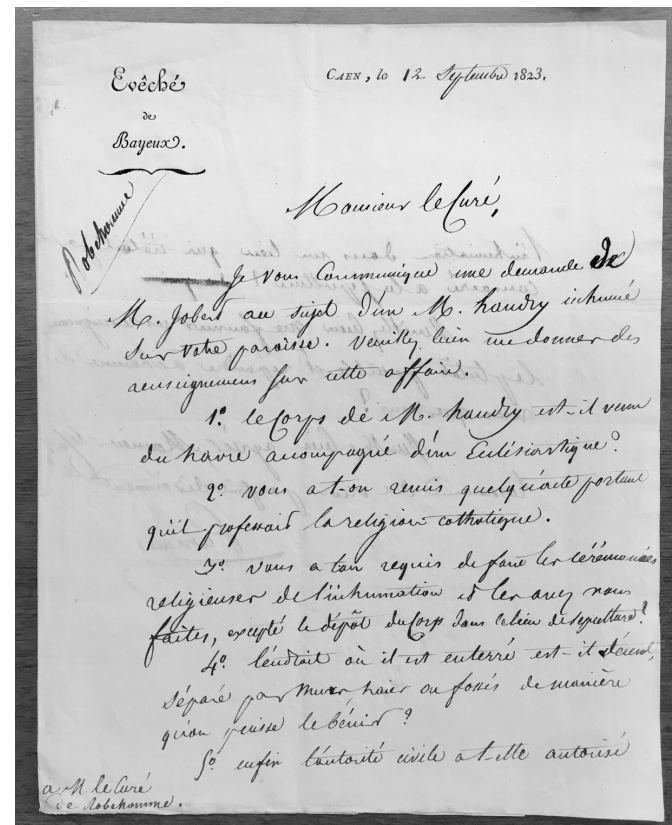 Evêché
de
Bayeux.
CAEN, le 12 Septembre 1823.
Robehomme
Monsieur le Curé,
Je vous Communique une demande de
M. Jobert au sujet d'un M. handry inhumé
sur votre paroisse. Veuillez bien me donner des
renseignemens sur cette affaire.
1.º le Corps de M. handry est-il venu
du havre accompagné d'un Eclésiastique?
2º vous a t-on remis quelqu'acte portant
qu'il professait la religion catholique.
3º vous a t'on requis de faire les cérémonies
religieuses de l'inhumation et les avez vous
faites, excepté le dépôt du Corps dans le lieu de sépulture?
4º l'endroit où il est enterré est-il décent,
séparé par murs, haies ou fossés de manière
qu'on puisse le bénir?
5º enfin l'autorité civile a t-elle autorisé
a M. le Curé
de Robehomme.